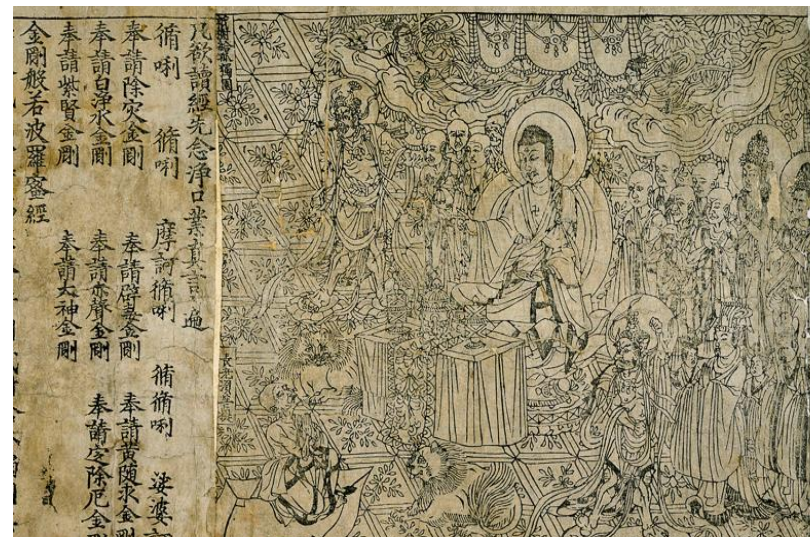 祇樹給孤獨園
長老須菩提
凡欲讀經先念淨口業真言一遍
脩唎 脩唎 摩訶脩唎 脩脩唎 娑婆
奉請除灾金剛 奉請辟毒金剛 奉請黃隨求金剛
奉請白淨水金剛 奉請赤聲金剛 奉請定除厄金
奉請紫賢金剛 奉請大神金剛
金剛般若波羅蜜經